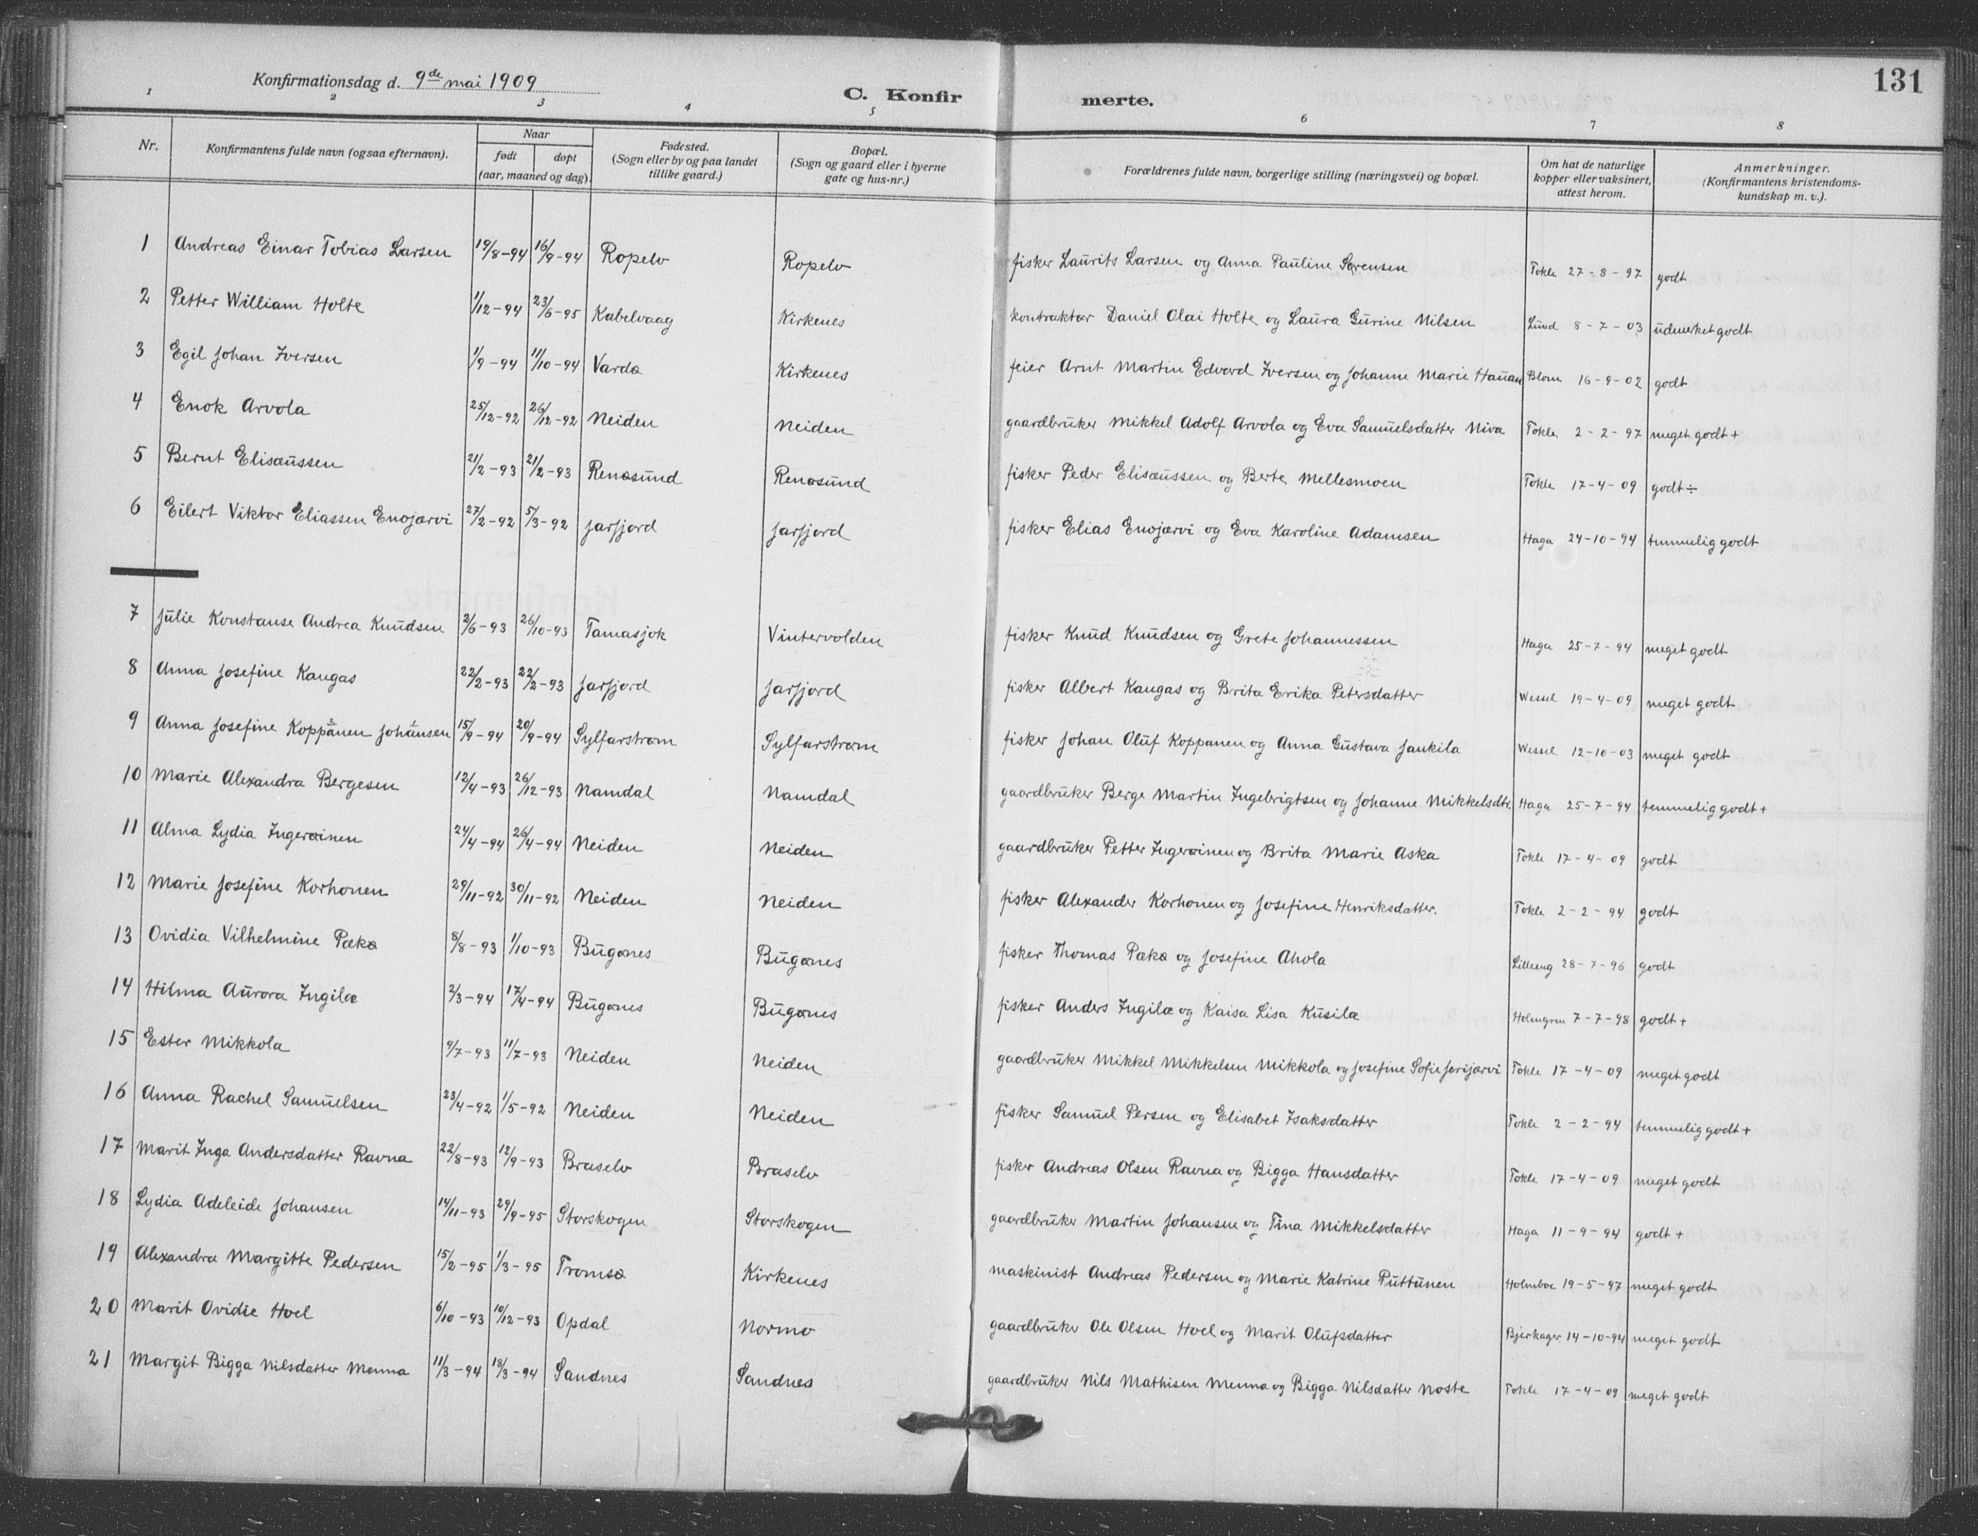 131
Konfirmationsdag d. 9de mai 1909
C. Konfir merte.
1 2 3 4 5 6 7 8
Nr. Konfirmantens fulde navn (ogsaa efternavn). Naar født døpt (aar, maaned og dag). Fødested. (Sogn eller by og paa landet tillike gaard.) Bopæl. (Sogn og gaard eller i byerne gate og hus-nr.) Forældrenes fulde navn, borgerlige stilling (næringsvei) og bopæl. Om hat de naturlige kopper eller vaksinert, attest herom. Anmerkninger. (Konfirmantens kristendomskundskap m. v.).
1 Andreas Einar Tobias Larsen 19/8-94 16/9-94 Ropelv Ropelv fisker Laurits Larsen og Anna Pauline Sørensen Tokle 27-8-97 godt
2 Petter William Holte 1/12-94 23/6-95 Kabelvaag Kirkenes kontraktør Daniel Olai Holte og Laura Gurine Nilsen Lund 8-7-03 udmerket godt
3 Egil Johan Iversen 1/9-94 11/10-94 Vardø Kirkenes feier Arnt Martin Edvard Iversen og Johanne Marie Hauan Blom 16-9-02 godt
4 Enok Arvola 25/12-92 26/12-92 Neiden Neiden gaardbruker Mikkel Adolf Arvola og Eva Samuelsdatter Niva Tokle 2-2-97 meget godt +
5 Bernt Elisæussen 21/2-93 21/2-93 Renøsund Renøsund fisker Peder Elisæussen og Berte Mellesmoen Tokle 17-4-09 godt ÷
6 Eilert Viktor Eliassen Enojærvi 27/2-92 5/3-92 Jarfjord Jarfjord fisker Elias Enojærvi og Eva Karoline Adamsen Haga 24-10-94 temmelig godt
7 Julie Konstanse Andrea Knudsen 2/6-93 26/10-93 Tamasjok Vintervolden fisker Knud Knudsen og Grete Johannessen Haga 25-7-94 meget godt
8 Anna Josefine Kangas 22/2-93 22/2-93 Jarfjord Jarfjord fisker Albert Kangas og Brita Erika Petersdatter Wessel 19-4-09 meget godt
9 Anna Josefine Koppänen Johansen 15/9-94 20/9-94 Sylfarstrøm Sylfarstrøm fisker Johan Oluf Koppanen og Anna Gustava Jankila Wessel 12-10-03 meget godt
10 Marie Alexandra Bergesen 12/4-93 26/12-93 Namdal Namdal gaardbruker Berge Martin Ingebrigtsen og Johanne Mikkelsdtr. Haga 25-7-94 temmelig godt +
11 Alma Lydia Ingerøinen 24/4-94 26/4-94 Neiden Neiden gaardbruker Petter Ingerøinen og Brita Marie Aska Tokle 17-4-09 godt
12 Marie Josefine Korhonen 29/11-92 30/11-92 Neiden Neiden fisker Alexander Korhonen og Josefine Henriksdatter. Tokle 2-2-94 godt
13 Ovidia Vilhelmine Pækø 8/8-93 1/10-93 Bugønes Bugønes fisker Thomas Pækø og Josefine Ahola Lilleeng 28-7-96 godt
14 Hilma Aurora Ingilæ 2/3-94 17/4-94 Bugønes Bugønes fisker Anders Ingilæ og Kaisa Lisa Kusilæ Holmgren 7-7-98 godt +
15 Ester Mikkola 9/7-93 11/7-93 Neiden Neiden gaardbruker Mikkel Mikkelsen Mikkola og Josefine Sofie Jarijærvi Tokle 17-4-09 meget godt
16 Anna Rachel Samuelsen 23/4-92 1/5-92 Neiden Neiden fisker Samuel Persen og Elisabet Isaksdatter Tokle 2-2-94 temmelig godt +
17 Marit Inga Andersdatter Ravna 22/8-93 12/9-93 Braselv Braselv fisker Andreas Olsen Ravna og Bigga Hansdatter Tokle 17-4-09 meget godt
18 Lydia Adeleide Johansen 14/11-93 29/9-95 Storskogen Storskogen gaardbruker Martin Johansen og Tina Mikkelsdatter Haga 11-9-94 godt +
19 Alexandra Margitte Pedersen 15/2-95 1/3-95 Tromsø Kirkenes maskinist Andreas Pedersen og Marie Katrine Puttunen Holmboe 19-5-97 meget godt
20 Marit Ovidie Hoel 6/10-93 10/12-93 Opdal Normo gaardbruker Ole Olsen Hoel og Marit Olufsdatter Bjerkager 14-10-94 meget godt
21 Margit Bigga Nilsdatter Menna 11/3-94 18/3-94 Sandnes Sandnes gaardbruker Nils Mathisen Menna og Bigga Nilsdatter Noste Tokle 17-4-09 meget godt